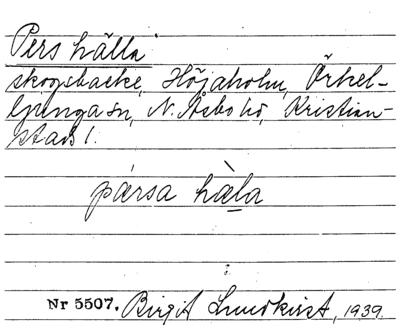 Pers hälla
skogsbacke, Höjaholm, Örkel-
ljunga sn, N. Åsbo hd, Kristian-
stads l.
pærsa hæla
Nr 5507. Birgit Lundkvist, 1939.